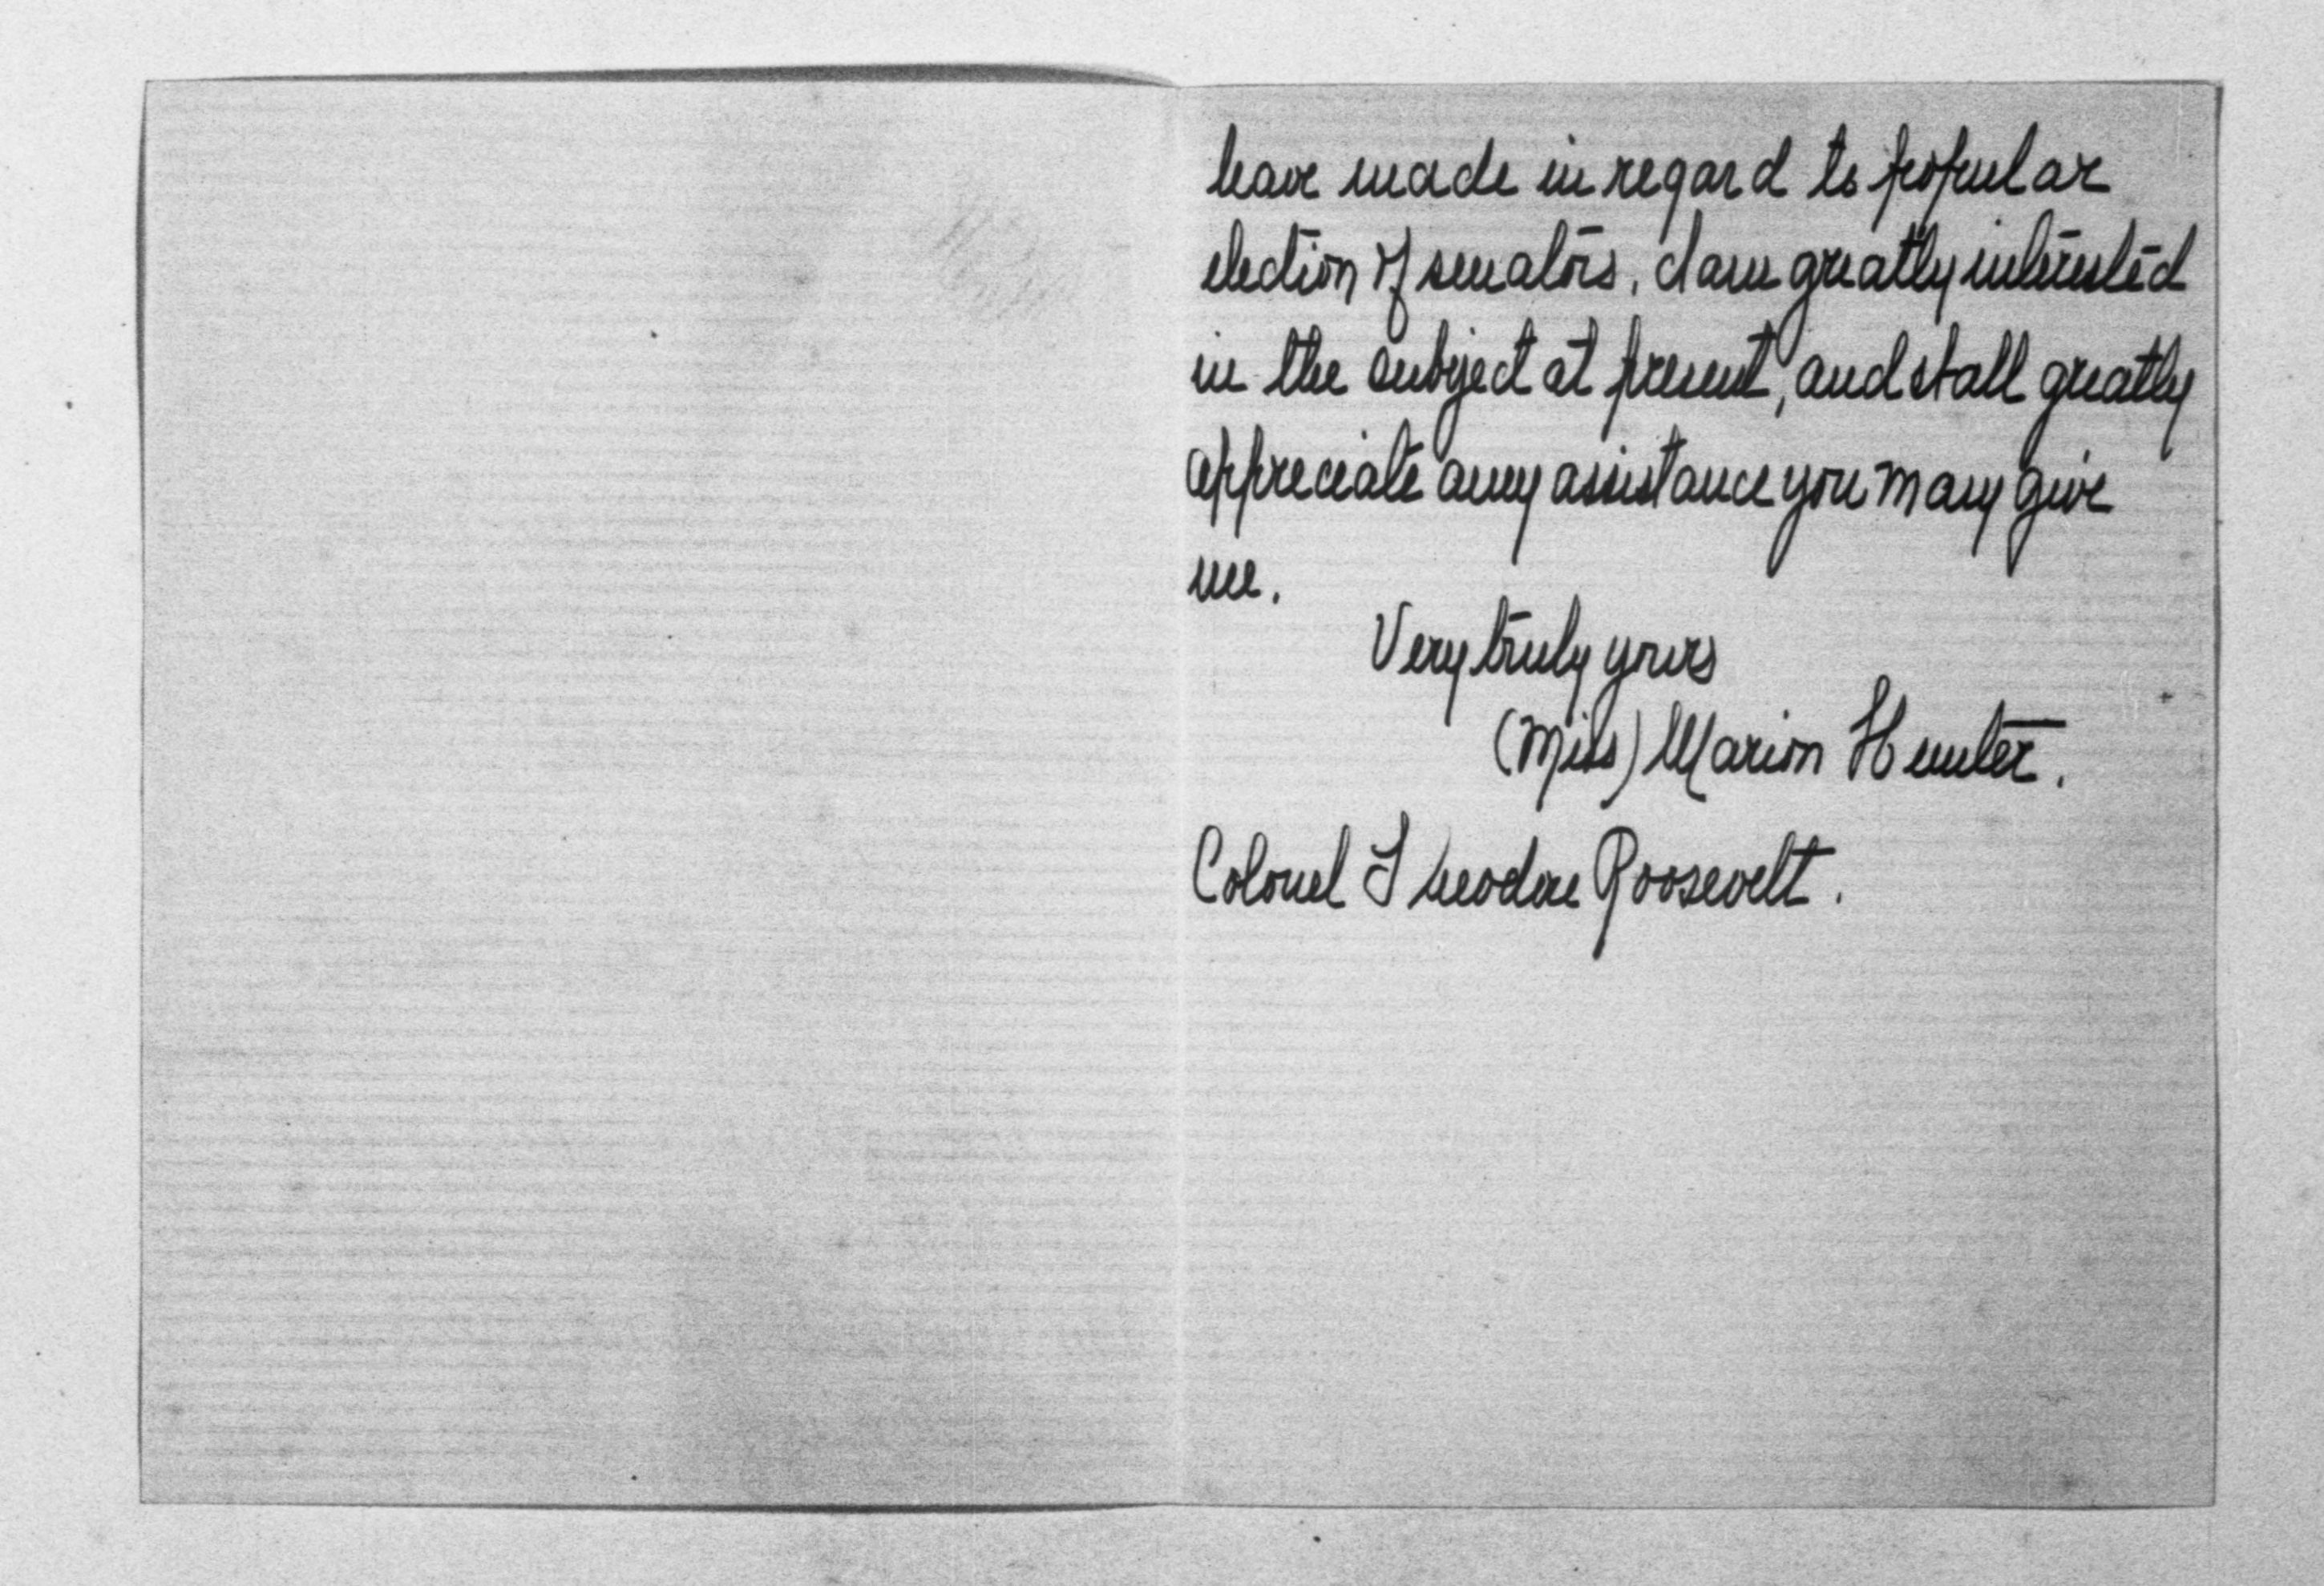 have made in regard to popular
election of senators. I am greatly interested
in the subject at present, and shall greatly
appreciate any assistance you may give
me.
Very truly yours
(Miss) Marion Hunter.
Colonel Theodore Roosevelt.